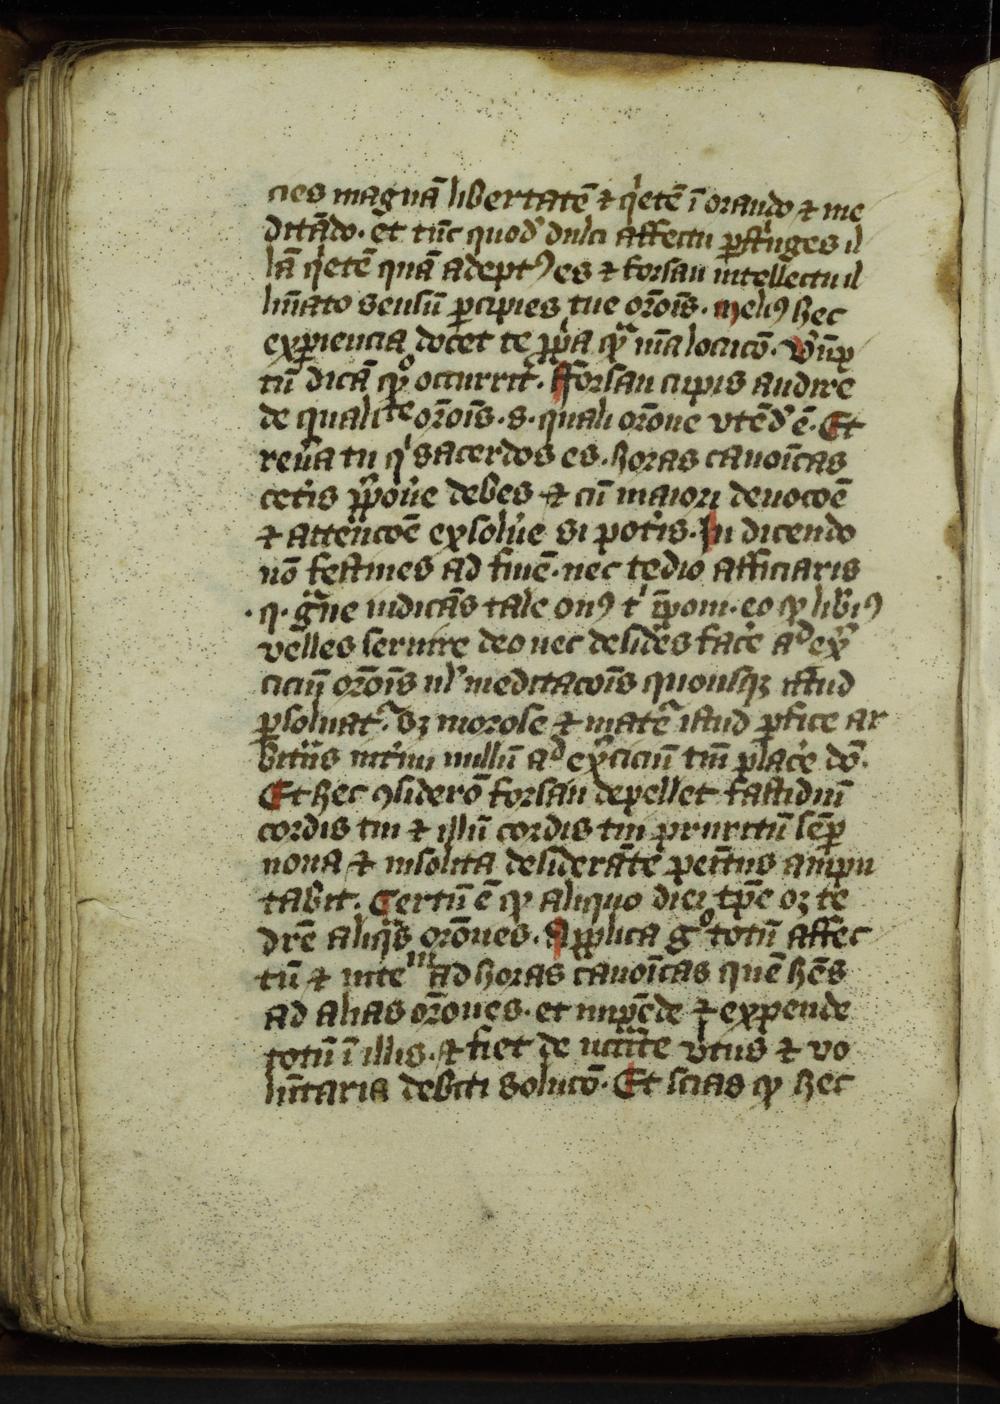 cies magnā libertatē ⁊ q̇etē ī orando ⁊ me
ditādo. et tūc quodᷓ dulci affectu ꝑstīges il
lā q̇etē quā adeptꝰ es ⁊ forsan intellectu il
lūiato sensū ꝑcipies tue or̄ois. melꝰ hec
experiencia docet te ꝓpͥa qͣ mͣ a locuco.
tn̄ dicā qͦ occurrit. fforsan cupis audire
de qualite or̄ois .s. quali or̄one vtēdᷓ ē. Et
reūa tu qͥ sacerdos es. horas canoīcas
cetis p̄ponē debes ⁊ cū maiori deuocoē
⁊ attencoē exsolūe si potis. In dicendo
nō festines ad finē. nec tedio afficiaris
.q. gͣue iudicās tale onꝰ tͥ īponi. eo ꝙ libͥꝰ
velles seruire deo nec desidēs facē ad exͦ
ciciū or̄ois ul᷑ meditacoīs quousqꝫ istud
ꝑsoluatᷓ. sꝫ morose ⁊ matē istud ꝑfice ar
bitͣis nullū ad exͦciciū tm̄ placē dō.
Et hec ꝯsiderō forsan depellet fastidiū
cordis tui ⁊ illū cordis tui pruritū sēꝑ
noua ⁊ insolita desiderāte penitus ampu
tabit. Certū ē ꝙ aliquo diei tp̄e oꝫ te
dr̄e aliqͣs or̄ones. Applica gͦ totū affec
tū ⁊ inteᵐ ad horas canoīcas quē hēs
ad alias or̄ones. et impēde ⁊ expende
totū ī illis. ⁊ fiet de vͥtus ⁊ vo
lūtaria debiti solucō. Et scias ꝙ hec